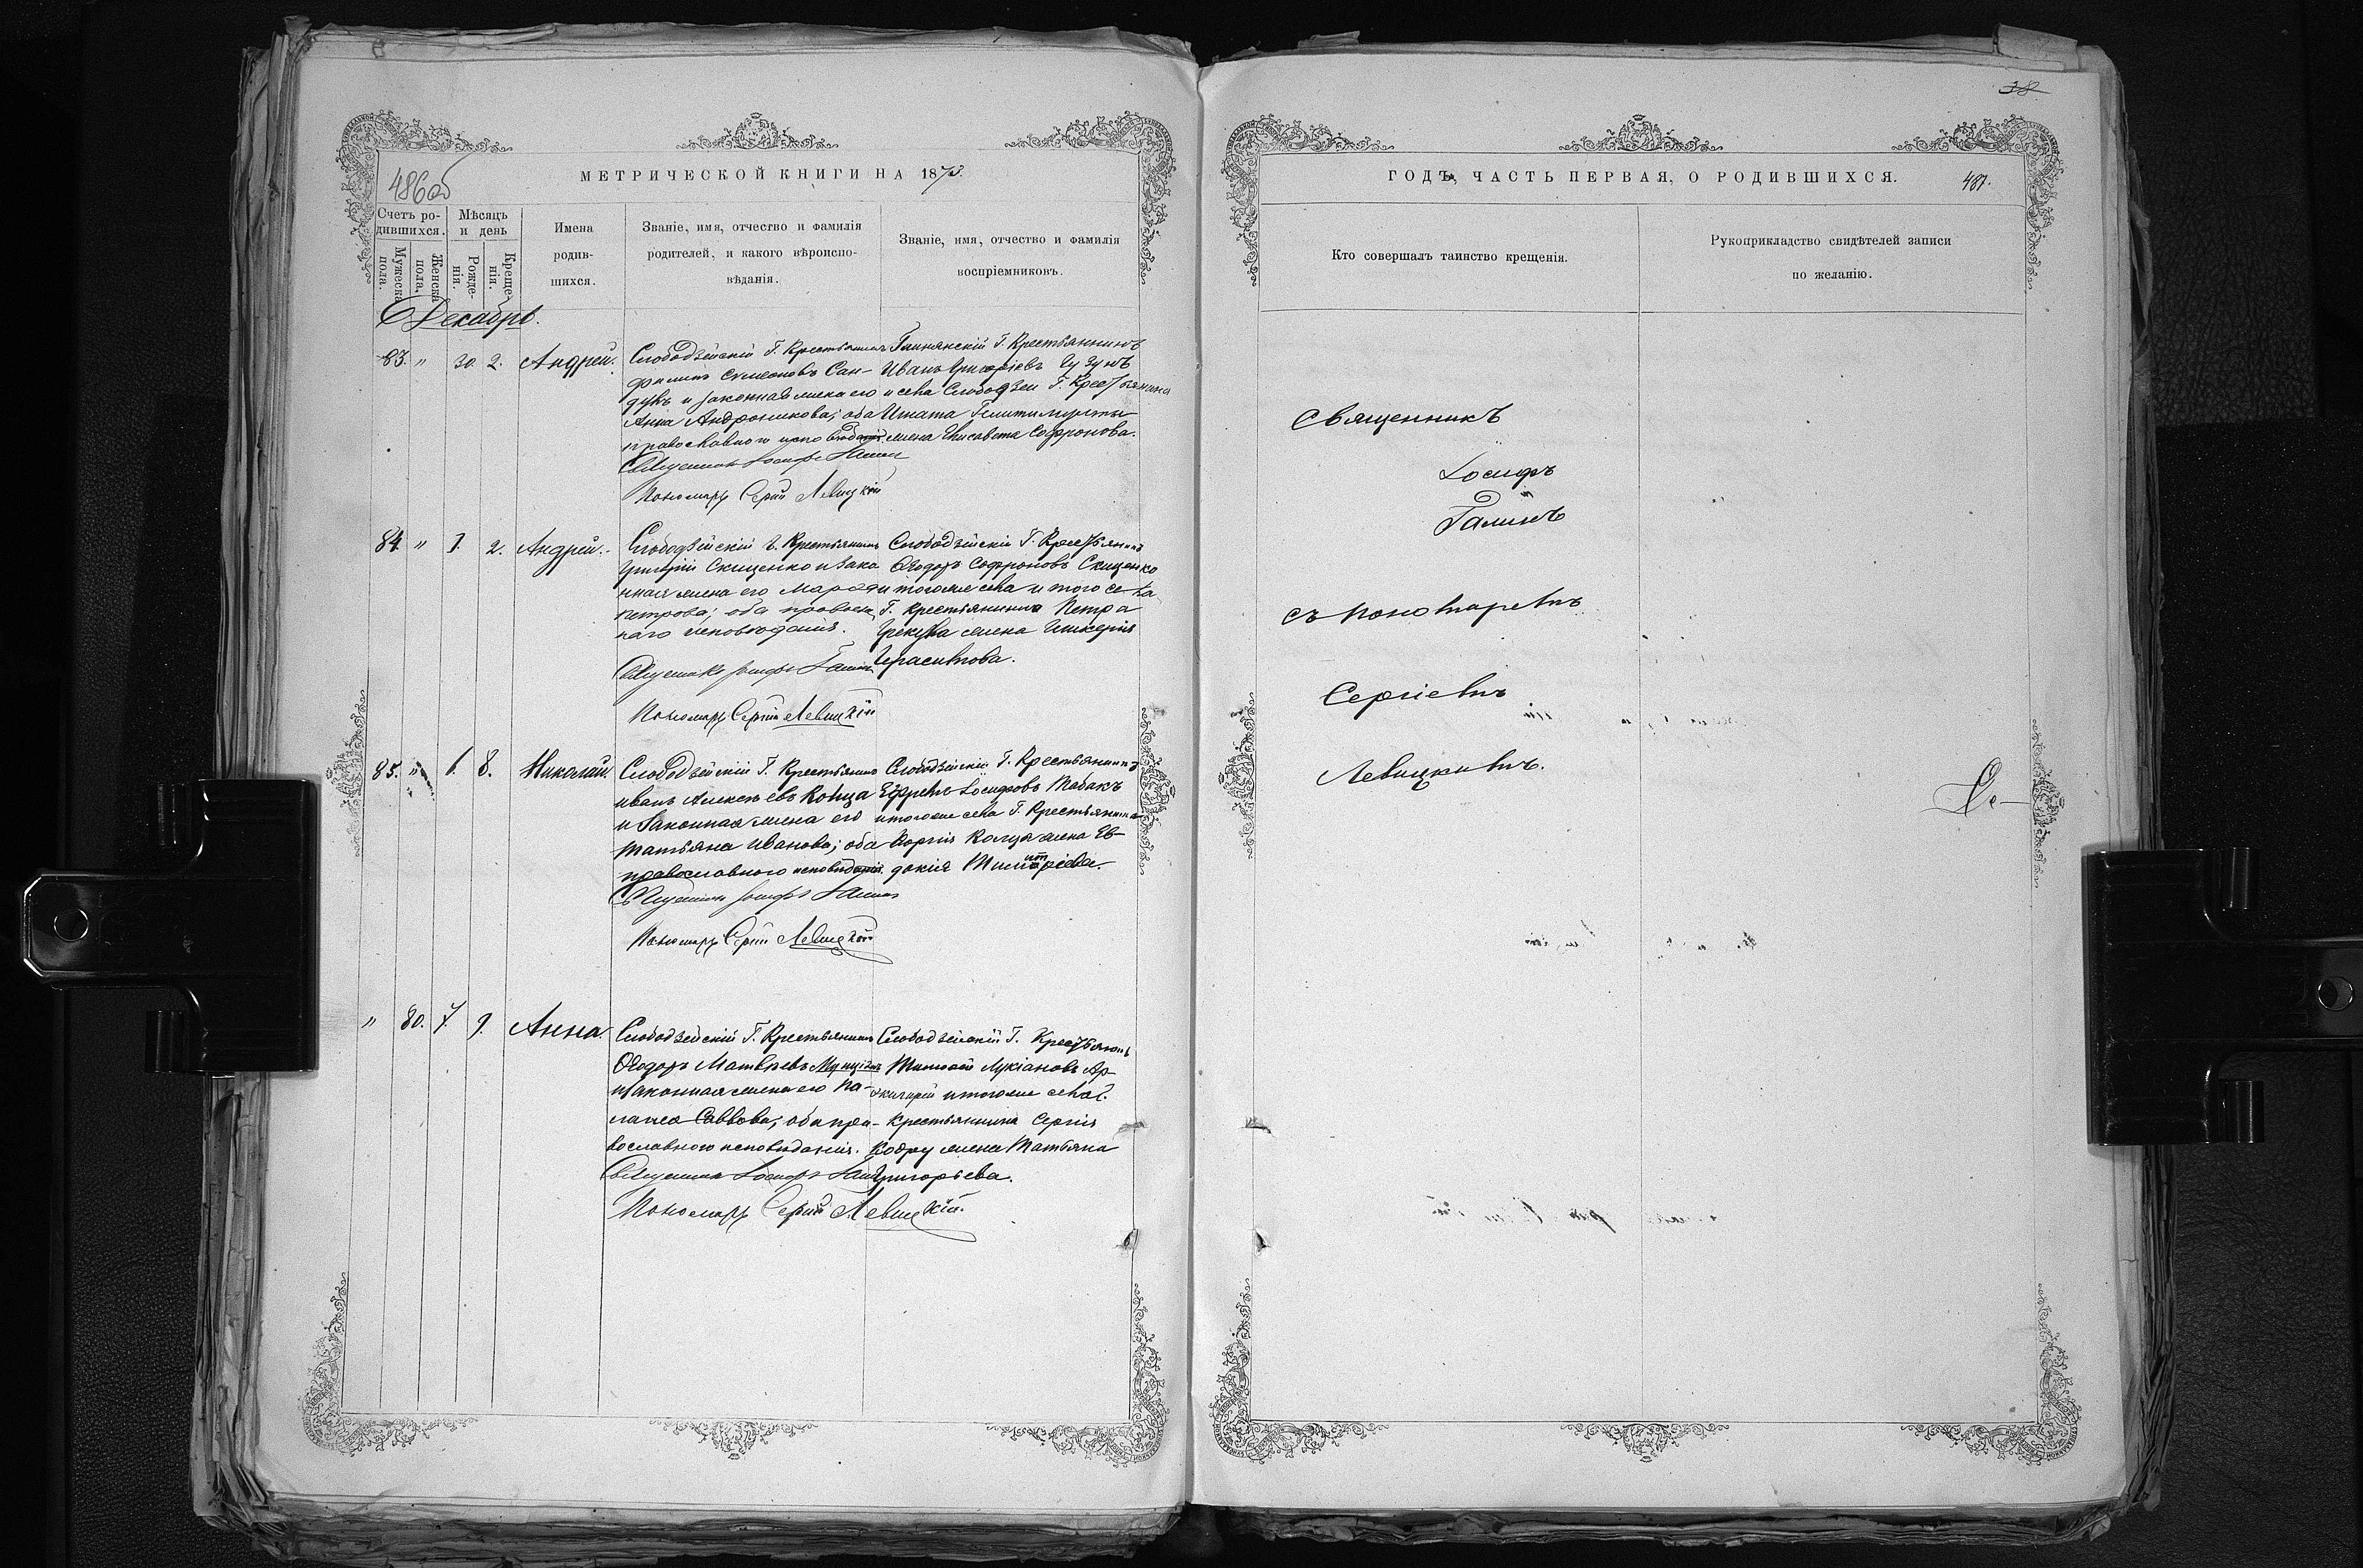 486 об
МЕТРИЧЕСКОЙ КНИГИ НА 1875.
Счетъ ро-
дившихся.
Мужеска
пола.
Женска
пола.
Мѣсяцъ
и день
Рожде-
нія.
Креще-
нія.
Имена
родив-
шихся.
Званіе, имя, отчество и фамилія
родителей, и какого вѣроиспо-
вѣданія.
Званіе, имя, отчество и фамилія
воспріемниковъ.
Декабрь.
83. " 30. 2. Андрей.
Слободзейскій Г. Крестьянинъ
Филипъ Симеоновъ Сан-
дулъ и законная жена его
Анна Андроникова; оба
православнаго исповѣданія.
Священникъ Іосифъ Галинъ
Пономарь Сергій Левицкій
Глинянскій Г. Крестьянинъ
Иванъ Григоріевъ
и села Слободзеи Г. Крестьянина
Игната жена Елисавета Софронова.
84. " 1. 2. Андрей.
Слободзейскій Г. Крестьянинъ
Григорій Скиценко и зако
нная жена его
Петрова; оба православ
наго исповѣданія.
Священникъ Іосифъ Галинъ
Пономарь Сергій Левицкій
Слободзейскій Г. Крестьянинъ
Ѳеодоръ Софроновъ Скиценко
и тогоже села и того села
Г. Крестьянина Петра
жена Гликерія
Герасимова.
85. " 6. 8. Николай.
Слободзейскій Г. Крестьянинъ
Иванъ Алексѣевъ Колца
и Законная жена его
Татьяна Иванова; оба
православнаго исповѣданія.
Священникъ Іосифъ Галинъ
Пономарь Сергій Левицкій
Слободзейскій Г. Крестьянинъ
Ефремъ Іосифовъ Табакъ
и тогоже села Г. Крестьянина
Георгія Колца жена Ев-
докія
" 80. 7. 9. Анна.
Слободзейскій Г. Крестьянинъ
Ѳеодоръ Матвѣевъ
и законная жена его Па-
Саввова; оба пра-
вославнаго исповѣданія.
Священникъ Іосифъ Галинъ
Пономарь Сергій Левицкій.
Слободзейскій Г. Крестьянинъ
Тимофей Лукіановъ
и тогоже села Г.
Крестьянина Сергія
Кодру жена Татьяна
Григорьева.
38
ГОДЪ, ЧАСТЬ ПЕРВАЯ, О РОДИВШИХСЯ. 487.
Кто совершалъ таинство крещенія.
Рукоприкладство свидѣтелей записи
по желанію.
Священникъ
Іосифъ
Галинъ
съ пономаремъ
Сергіемъ
Левицкимъ.
Де-